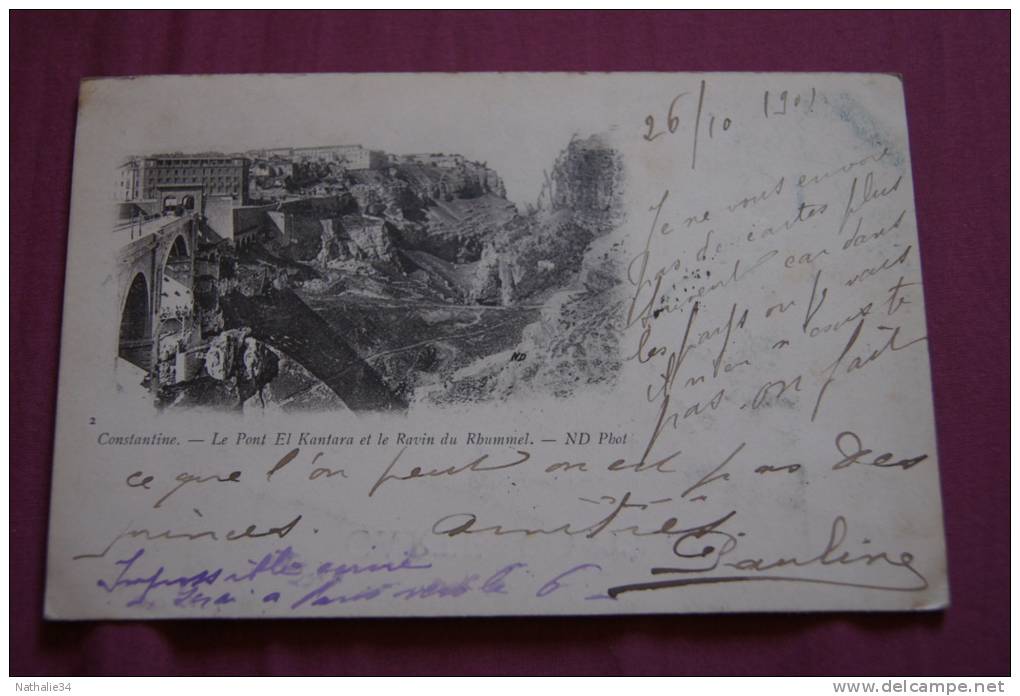 26/10 1901
Je ne vous envoie
pas de cartes plus
souvent car dans
les pays où je vais
il n'en existe
pas. on fait
ND
2
Constantine. — Le Pont El Kantara et le Ravin du Rhummel. — ND Phot
ce que l'on peut on est pas des
princes. Amitiés
Pauline
Impossible
serai à Paris vers le 6
Nathalie34
http://www.delcampe.net